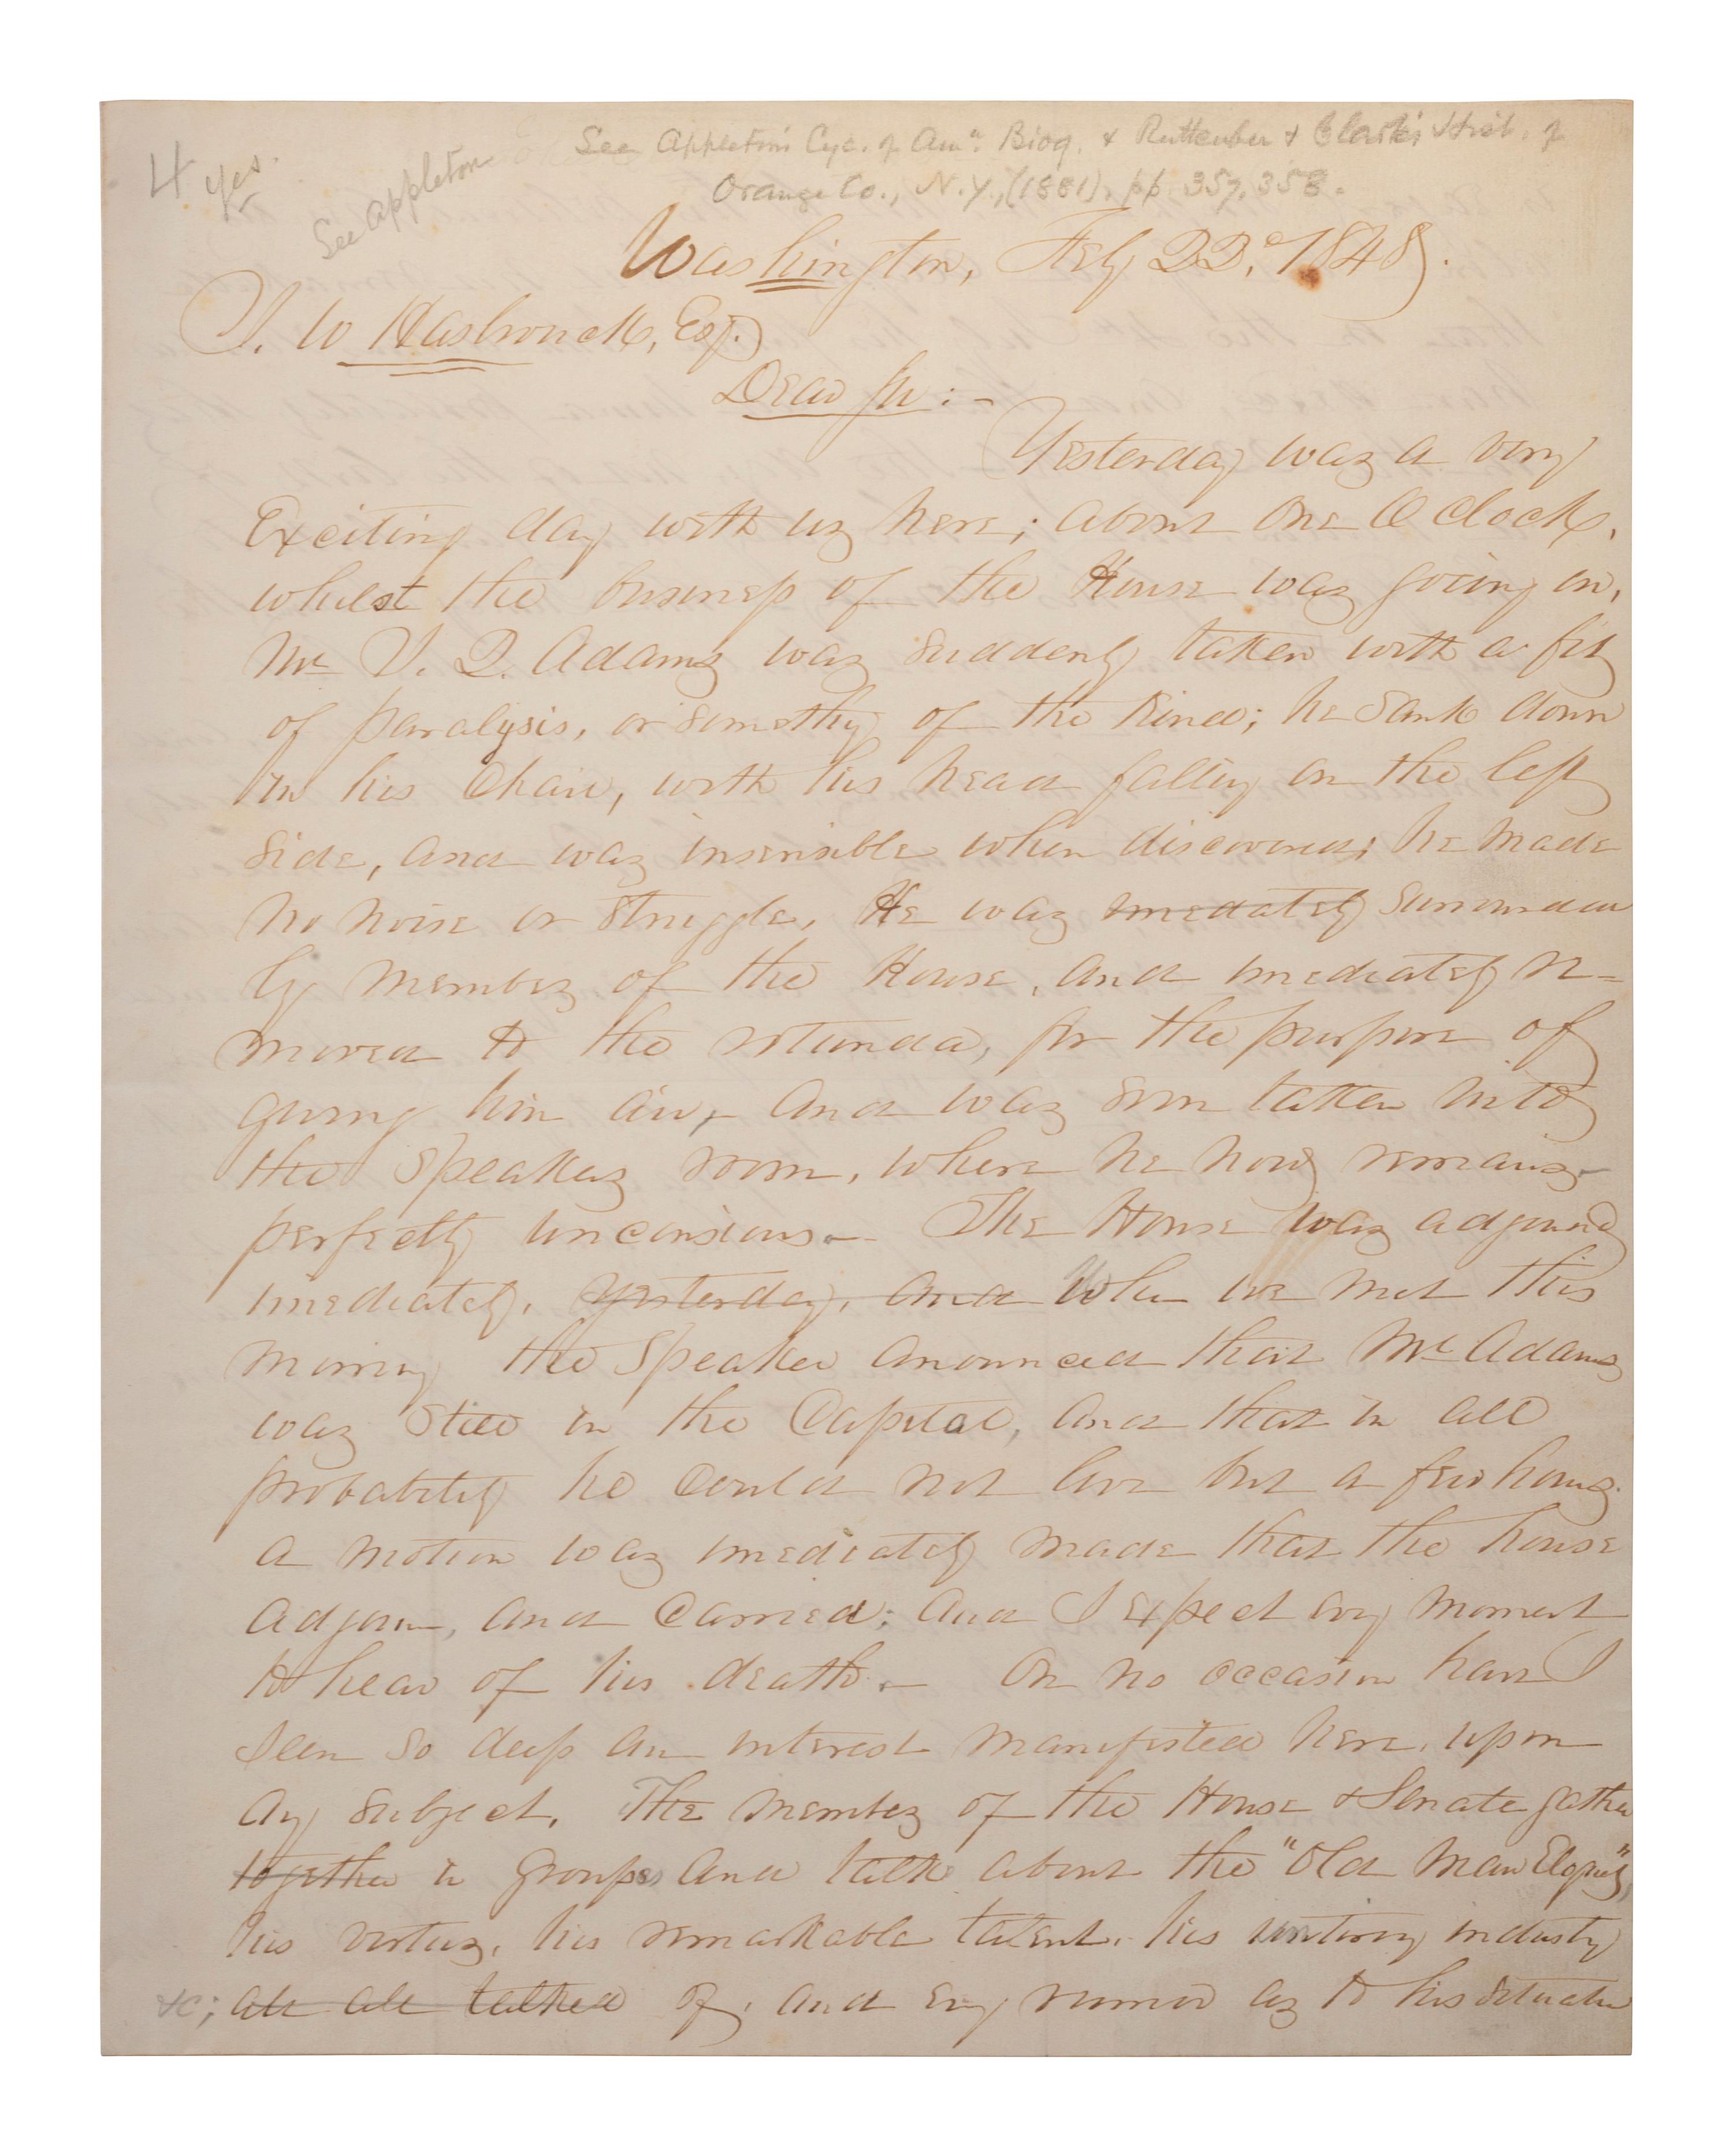 4 yes.
See Appleton
See Appleton's Cyc. of Amn. Biog. & Ruttenber & Clark's Hist. of
Orange Co., N.Y., (1881), pp. 357, 358.
Washington, Feby 22d, 1848.
J. W Hasbrouck, Esq.
Dear Sir : -
Yesterday was a very
Exciting day with us here; about one O Clock,
whilst the business of the House was going on,
Mr J. Q. Adams was suddenly taken with a fit
of paralysis, or somethg of the kind; he sank down
in his Chair, with his head falling on the left
side, and was insensible when discovered; he made
no noise or struggle. He was imediately surrounded
by members of the House, and imediately re-
moved to the rotunda, for the purpose of
giving him air, and was soon taken into
the Speakers room, where he now remains
perfectly unconsious. - The House was adjourned
imediately, yesterday, and When we met this
morning the Speaker anounced that Mr Adams
was still in the Capital, and that in all
probability he could not live but a few hours.
a motion was imediately made that the house
adjourn, and Carried; and I expect evry moment
to hear of his death. - On no occasion have I
seen so deep an interest manifested here, upon
any subject. The members of the House & Senate gather
together in groups and talk about the "Old Man Eloquent",
his virtues, his remarkable talent, his untiring industry
&c; are all talked of, and evry rumor as to his situation